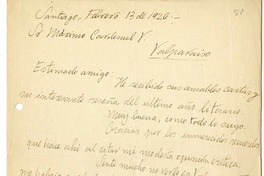 51
Santiago, Febrero 13 de 1926.-
Sr Máximo Cardemil V.
Valparaíso
Estimado amigo: He recibido sus amables cartas y
su interesante reseña del último año literario.
Muy buena, como todo lo suyo.
Gracias por los inmerecidos recuerdos
que hace ahí al citar mi modesta opinión crítica.
Siento mucho no verlo en